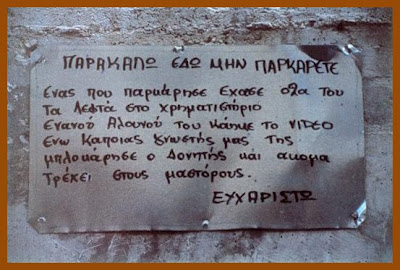 ΠΑΡΑΚΑΛΩ ΕΔΩ ΜΗΝ ΠΑΡΚΑΡΕΤΕ
Ενας που παρκάρησε εχασε ολα του
Τα Λεφτά στο χρηματιστήριο
Ενανού Αλουνού του κάηκε το VIDEO
Ενω καποιας γνωστής μας της
μπλοκάρησε ο Δονητής και ακομα
τρέχει στους μαστόρους.
ΕΥΧΑΡΙΣΤΩ